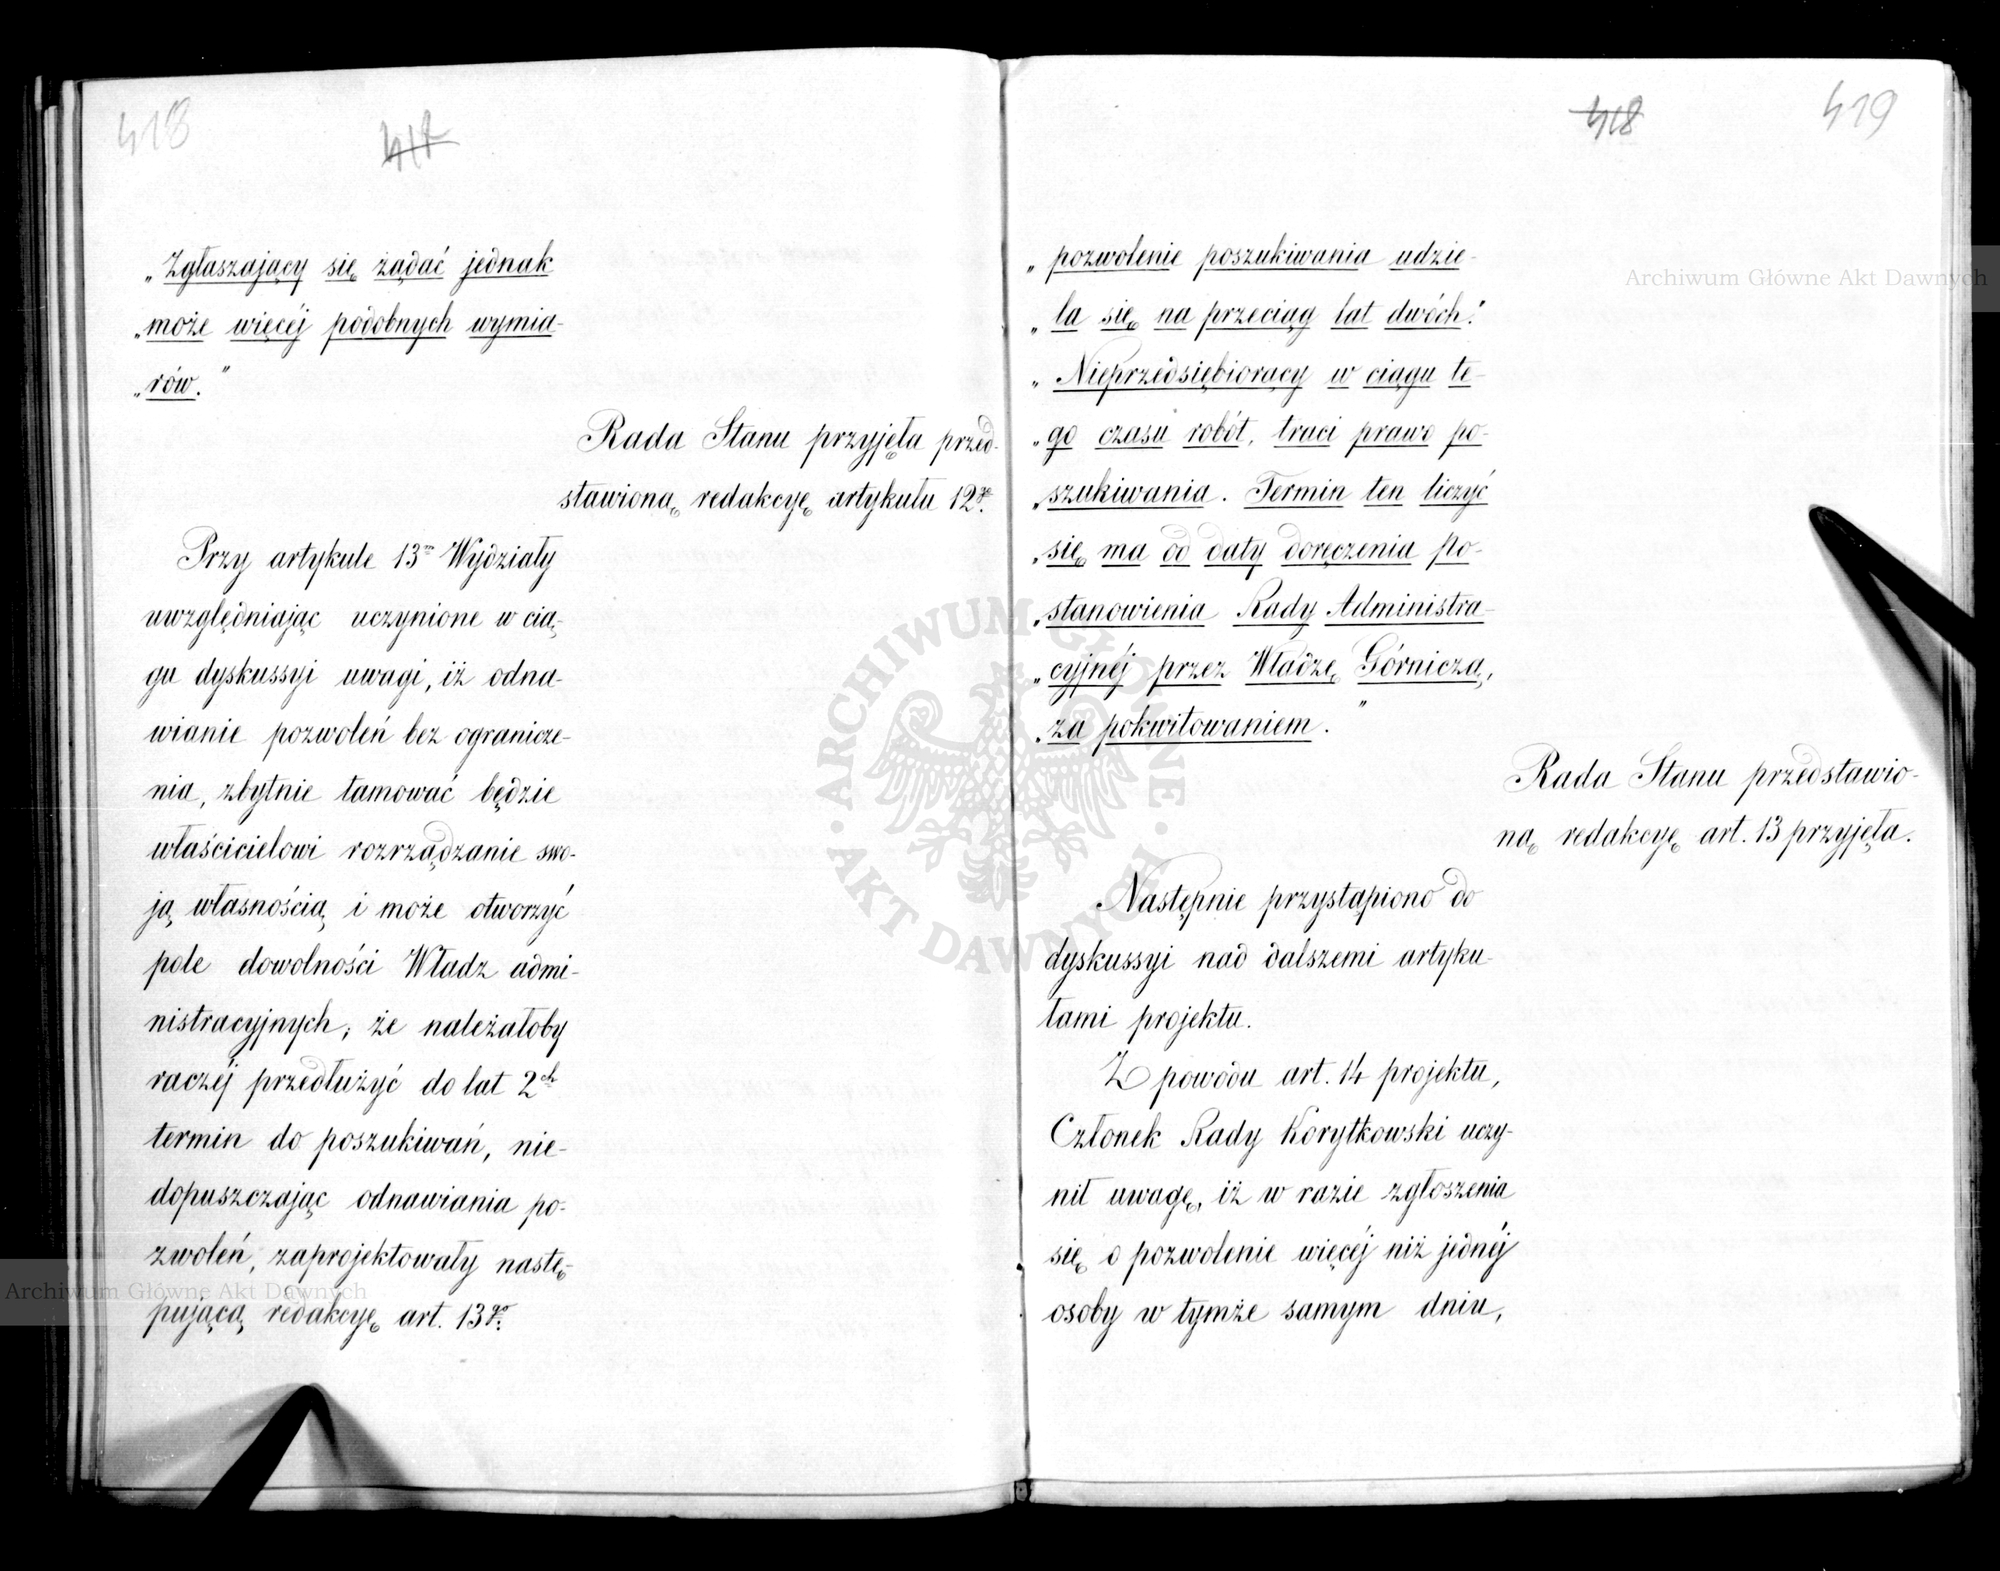 418
417
„Zgłaszający się żądać jednak
„może więcéj podobnych wymia-
„rów."
Rada Stanu przyjęła przed-
stawioną redakcyę artykułu 12go.
Przy artykule 13m Wydziały
uwzględniając uczynione w cią-
gu dyskussyi uwagi, iż odna-
wianie pozwoleń bez ogranicze-
nia, zbytnie tamować będzie
właścicielowi rozrządzanie swo-
ją własnością i może otworzyć
pole dowolności Władz admi-
nistracyjnych; że należałoby
raczéj przedłużyć do lat 2ch
termin do poszukiwań, nie-
dopuszczając odnawiania po-
zwoleń, zaprojektowały nastę-
pującą redakcyę art. 13go.
418
419
„pozwolenie poszukiwania udzie-
„la się na przeciąg lat dwóch."
„Nieprzedsiębiorący w ciągu te-
„go czasu robót, traci prawo po-
„szukiwania. Termin ten liczyć
„się ma od daty doręczenia po-
„stanowienia Rady Administra-
„cyjnéj przez Władzę Górniczą,
„za pokwitowaniem."
Rada Stanu przedstawio-
ną redakcyę art. 13 przyjęła.
Następnie przystąpiono do
dyskussyi nad dalszemi artyku-
łami projektu.
Z powodu art. 14 projektu,
Członek Rady Korytkowski uczy-
nił uwagę, iż w razie zgłoszenia
się o pozwolenie więcéj niż jednéj
osoby w tymże samym dniu,
Archiwum Główne Akt Dawnych
Archiwum Główne Akt Dawnych
ARCHIWUM GŁÓWNE
AKT DAWNYCH